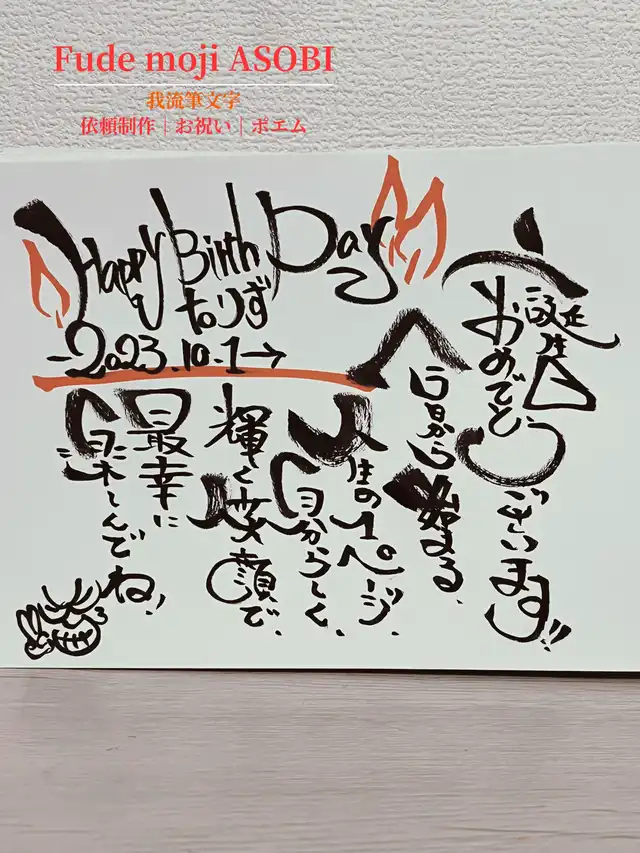 Fude moji ASOBI
我流筆文字
依頼制作｜お祝い｜ポエム
Happy Birth Day
なりず
-2023.10.1→
誕生日
おめでとう
ございます!!
今日から始まる、
人生の1ページ、
自分らしく、
輝く笑顔で、
最幸に
楽しんでね!